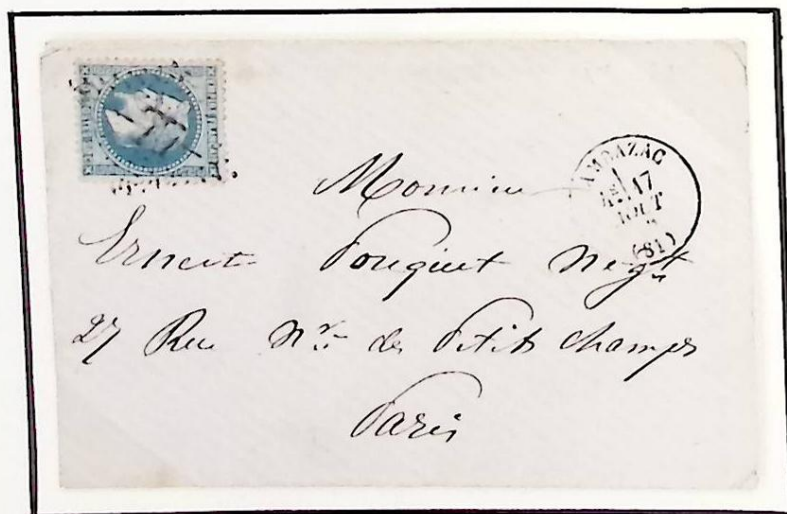 AMBAZAC
1E
17
AOUT
(81)
Monsieur
Ernest Fouquet Negt
27 Rue Nve des Petits Champs
Paris